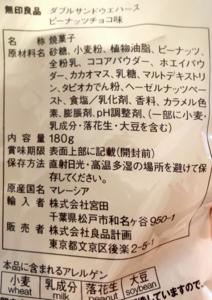 無印良品 ダブルサンドウエハース
ピーナッツチョコ味
名称 焼菓子
原材料名 砂糖、小麦粉、植物油脂、ピーナッツ、
全粉乳、ココアパウダー、ホエイパウ
ダー、カカオマス、乳糖、マルトデキストリ
ン、タピオカでん粉、ヘーゼルナッツペー
スト、食塩/乳化剤、香料、カラメル色
素、膨脹剤、pH調整剤、(一部に小麦・
乳成分・落花生・大豆を含む)
内容量 180g
賞味期限 表面上部に記載(開封前)
保存方法 直射日光・高温多湿の場所を避けて保
存してください。
原産国名 マレーシア
輸入者 株式会社宮田
千葉県松戸市和名ヶ谷950-1
販売者 株式会社良品計画
東京都文京区後楽2-5-1
本品に含まれるアレルゲン
小麦 乳成分 落花生 大豆
wheat milk peanut soybean
ていますので、